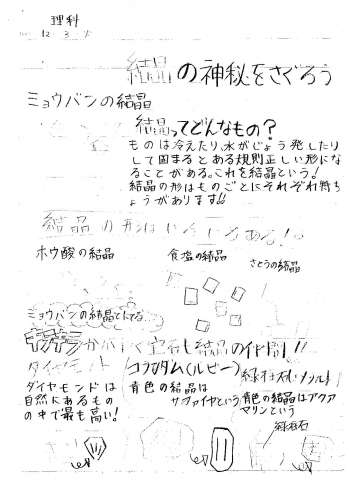 理科
12 3
結晶の神秘をさぐろう
ミョウバンの結晶
結晶ってどんなもの?
ものは冷えたり,水がじょう発したり
して固まるとある規則正しい形にな
ることがある。これを結晶という!
結晶の形はものごとにそれぞれ特ち
ょうがあります!!
結晶の形はいろいろある!
ホウ酸の結晶
食塩の結晶
さとうの結晶
ミョウバンの結晶
キラキラかがやく宝石も結晶の仲間!!
ダイヤモンド
コランダム(ルビー)
緑柱石
ダイヤモンドは
自然にあるもの
の中で最も高い!
青色の結晶は
サファイヤという
青色の結晶はアクア
マリンという
緑柱石